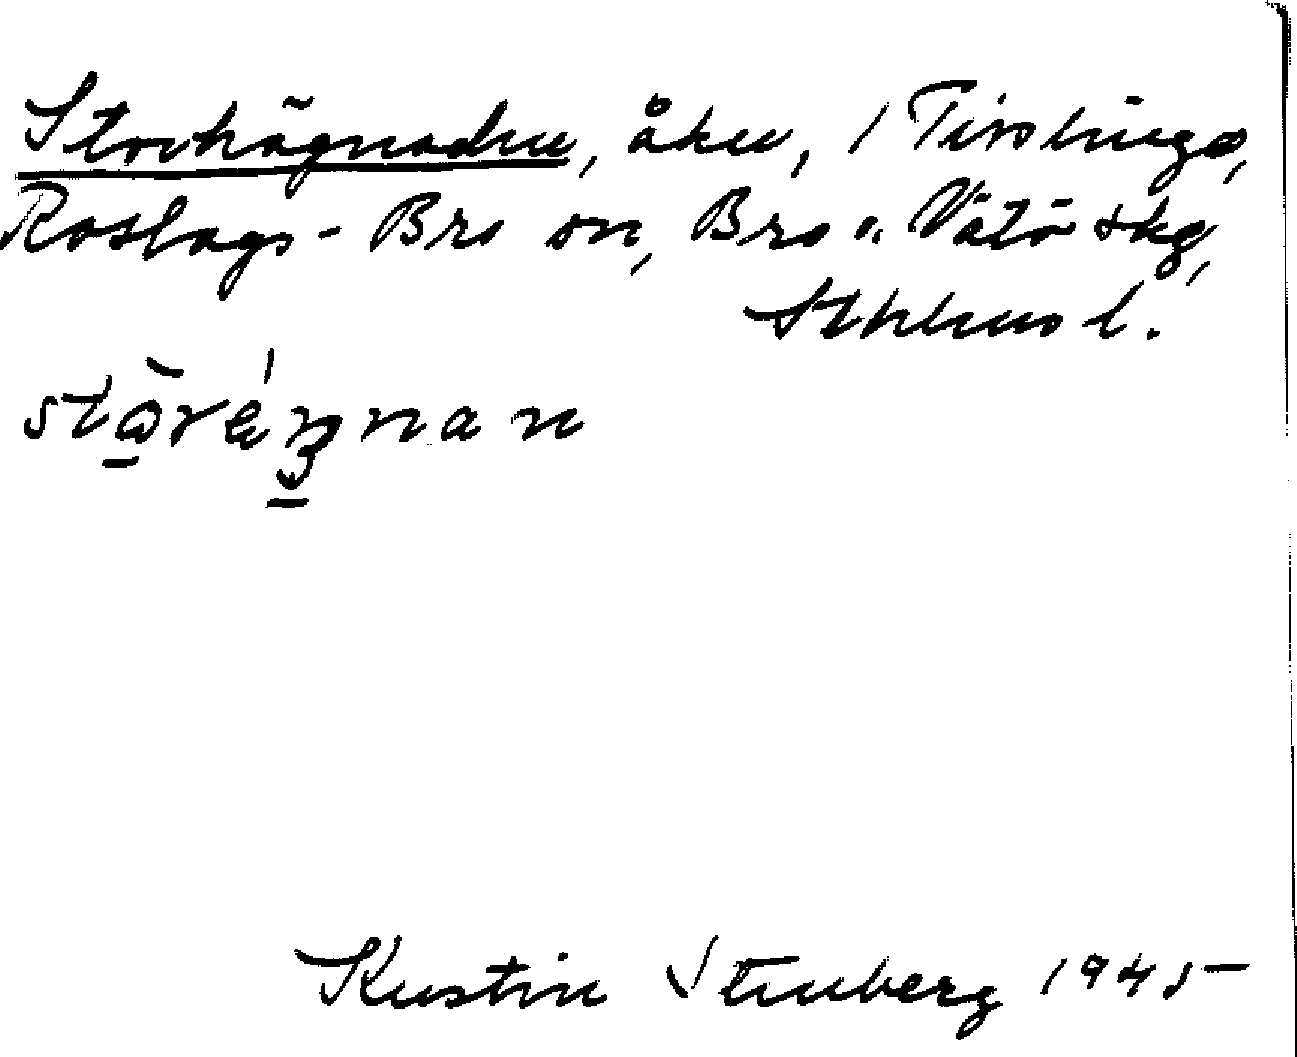 Storhägnaden, åker, 1 Tirslinge,
Roslags-Bro sn, Bro o. Vätö skg,
Sthlms l.
Kerstin Stenberg 1945